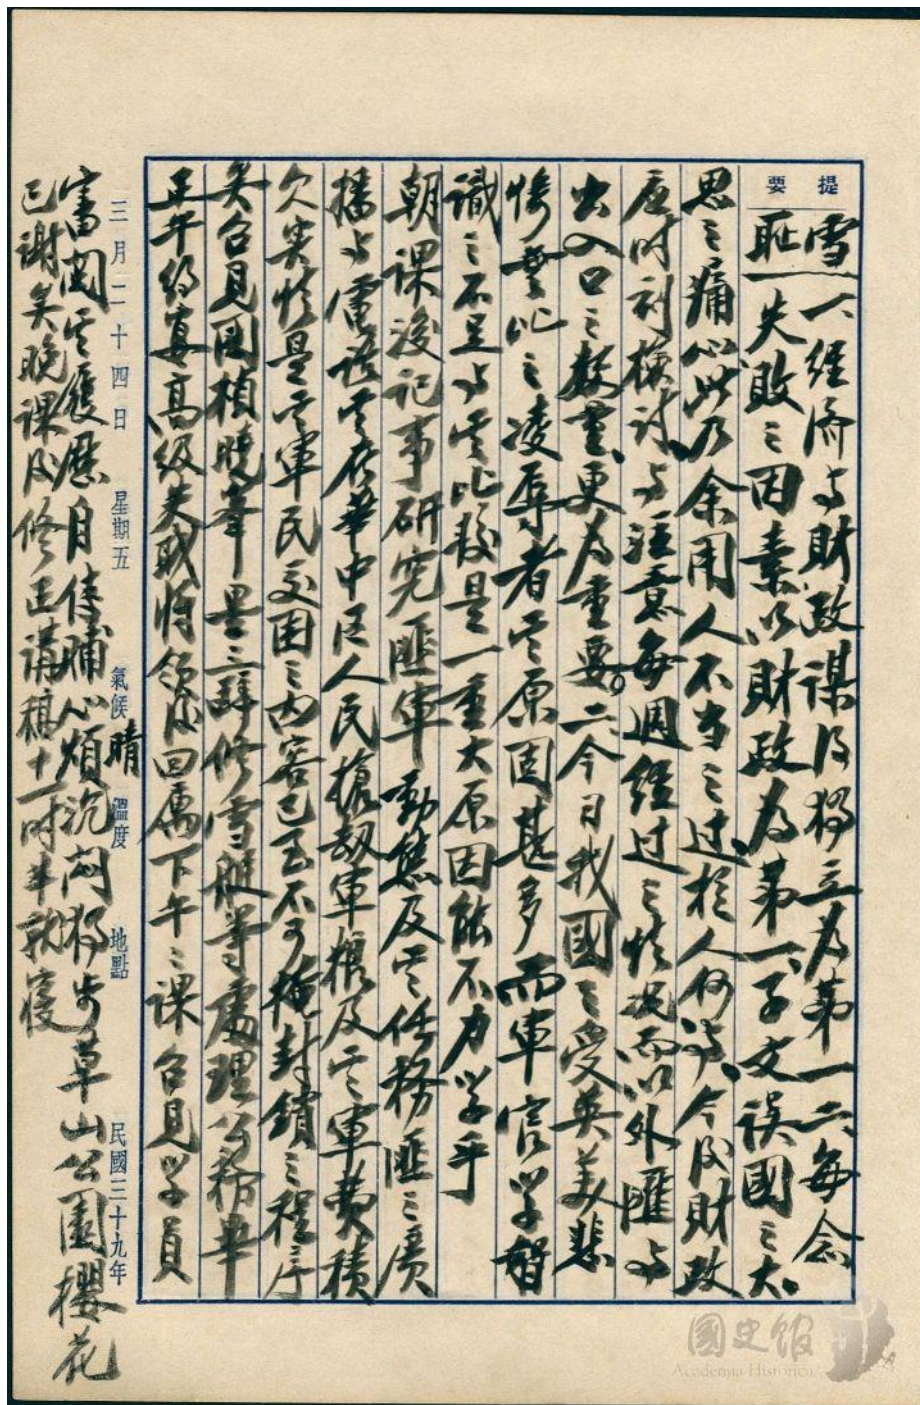 提要
雪一、經濟與財政謀得獨立為第一二、每念
恥失敗之因素以財政為第一子文誤國之大、
思之痛心此乃余用人不當之過、於人何尤、今後財政
應時刻檢討與注意每週經過之情況而以外匯與
出入口之數量、更為重要。二、今日我國之受英美悲
慘至此之凌辱者其原因甚多而軍官學智
識之不足與其比較是一重大原因能不力學乎
朝課後記事研究匪軍動態及其任務匪之廣
播與雷語其在華中區人民搶劫軍糧及其軍費積
欠災情是其軍民交困之內容已至不可掩封鎖之程序
矣召見國楨曉峯墨三辭修雪艇等處理公務畢
正午約宴高級失職將領後回寓下午二課召見學員
三月二十四日 星期五 氣候 晴 溫度 地點 民國三十九年
富閱其履歷自傳晡心煩沉悶獨步草山公園櫻花
已謝矣晚課後修正講稿十一時半就寢
國史館
Academia Historica